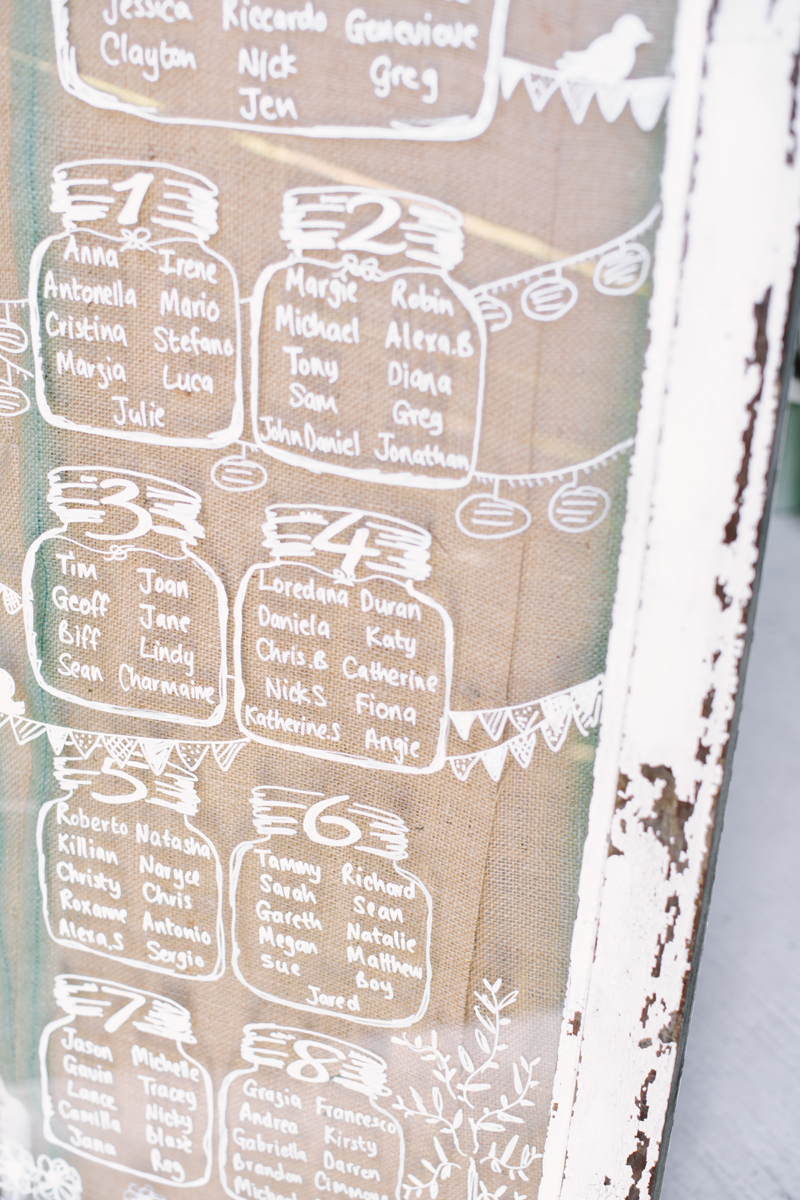 Jessica Riccardo Genevieve
Clayton Nick Greg
Jen
1
Anna Irene
Antonella Mario
Cristina Stefano
Marzia Luca
Julie
2
Margie Robin
Michael Alexa.B
Tony Diana
Sam Greg
JohnDaniel Jonathan
3
Tim Joan
Geoff Jane
Biff Lindy
Sean Charmaine
4
Loredana Duran
Daniela Katy
Chris.B Catherine
NickS Fiona
Katherine.S Angie
5
Roberto Natasha
Killian Naryce
Christy Chris
Roxanne Antonio
Alexa.S Sergio
6
Tammy Richard
Sarah Sean
Gareth Natalie
Megan Matthew
Sue Boy
Jared
7
Jason Michelle
Gavin Tracey
Lance Nicky
Camilla Blase
Jana Reg
8
Grazia Francesco
Andrea Kirsty
Gabriella Darren
Brandon